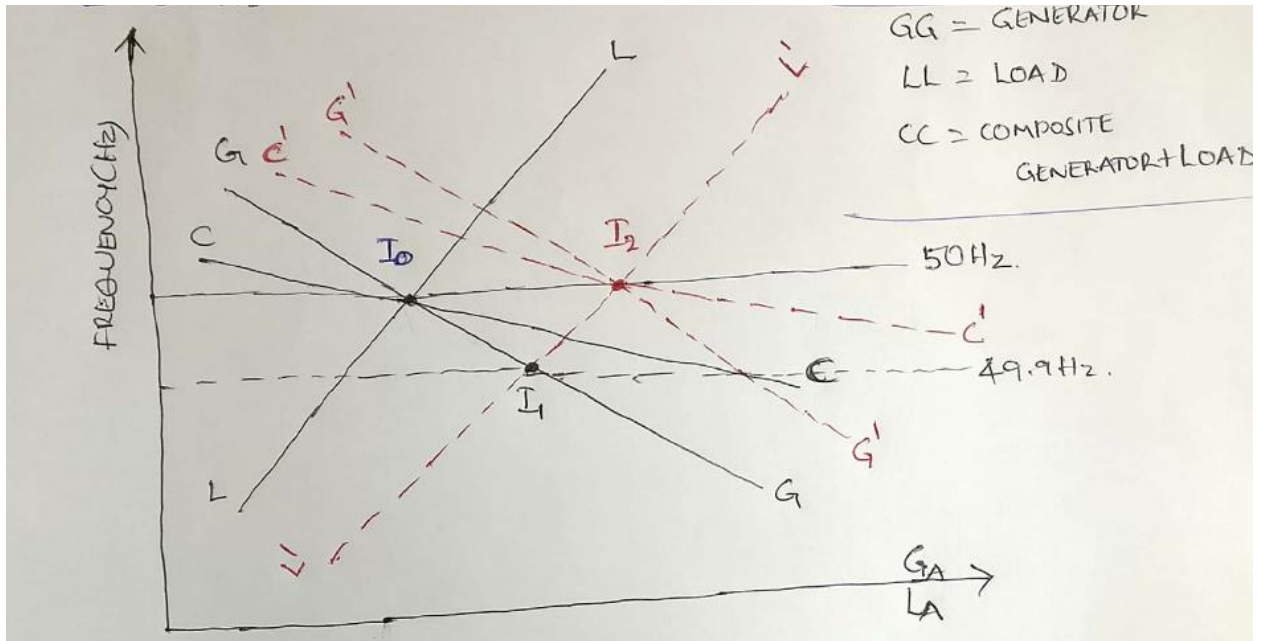 GG = GENERATOR
LL = LOAD
CC = COMPOSITE
GENERATOR+LOAD
FREQUENCY(HZ)
L
L'
G'
G
C'
C
I0
I2
50HZ.
C'
C
49.9HZ.
I1
G'
L
G
L'
GA
LA